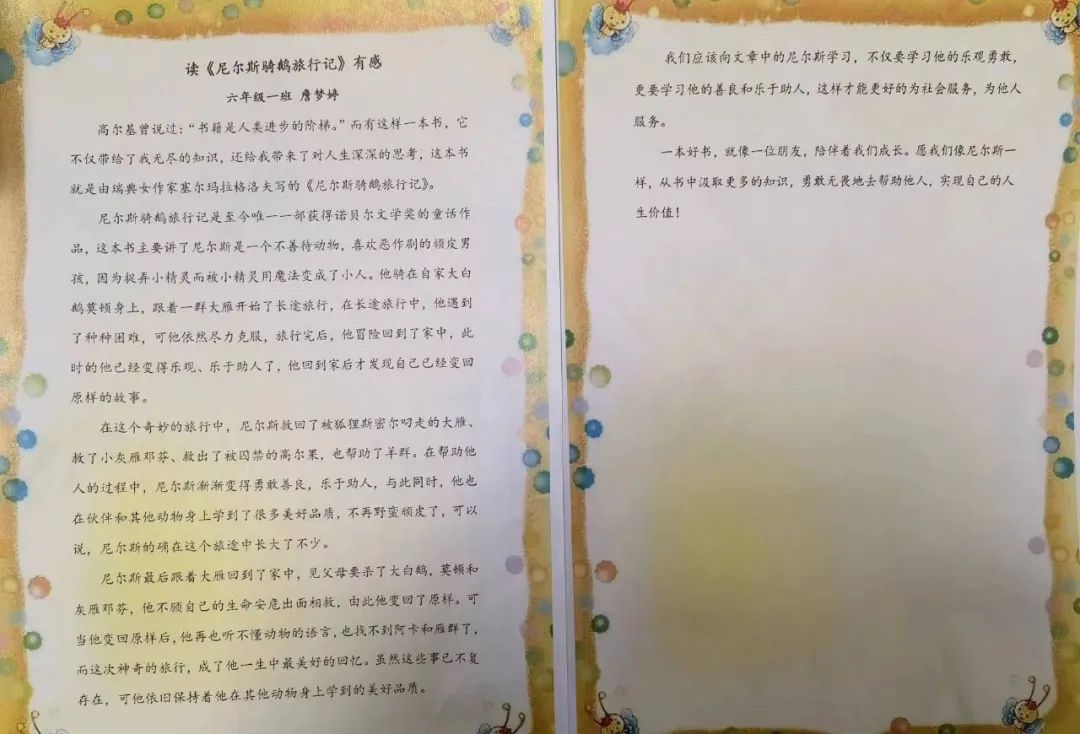 读《尼尔斯骑鹅旅行记》有感
六年级一班 詹梦婷
高尔基曾说过：“书籍是人类进步的阶梯。”而有这样一本书，它
不仅带给了我无尽的知识，还给我带来了对人生深深的思考，这本书
就是由瑞典女作家塞尔玛拉格洛夫写的《尼尔斯骑鹅旅行记》。
尼尔斯骑鹅旅行记是至今唯一一部获得诺贝尔文学奖的童话作
品，这本书主要讲了尼尔斯是一个不善待动物，喜欢恶作剧的顽皮男
孩，因为捉弄小精灵而被小精灵用魔法变成了小人。他骑在自家大白
鹅莫顿身上，跟着一群大雁开始了长途旅行，在长途旅行中，他遇到
了种种困难，可他依然尽力克服，旅行完后，他冒险回到了家中，此
时的他已经变得乐观、乐于助人了，他回到家后才发现自己已经变回
原样的故事。
在这个奇妙的旅行中，尼尔斯救回了被狐狸斯密尔叼走的大雁、
救了小灰雁邓芬、救出了被囚禁的高尔果，也帮助了羊群。在帮助他
人的过程中，尼尔斯渐渐变得勇敢善良，乐于助人，与此同时，他也
在伙伴和其他动物身上学到了很多美好品质，不再野蛮顽皮了，可以
说，尼尔斯的确在这个旅途中长大了不少。
尼尔斯最后跟着大雁回到了家中，见父母要杀了大白鹅，莫顿和
灰雁邓芬，他不顾自己的生命安危出面相救，由此他变回了原样。可
当他变回原样后，他再也听不懂动物的语言，也找不到阿卡和雁群了，
而这次神奇的旅行，成了他一生中最美好的回忆。虽然这些事已不复
存在，可他依旧保持着他在其他动物身上学到的美好品质。
我们应该向文章中的尼尔斯学习，不仅要学习他的乐观勇敢，
更要学习他的善良和乐于助人，这样才能更好的为社会服务，为他人
服务。
一本好书，就像一位朋友，陪伴着我们成长。愿我们像尼尔斯一
样，从书中汲取更多的知识，勇敢无畏地去帮助他人，实现自己的人
生价值！